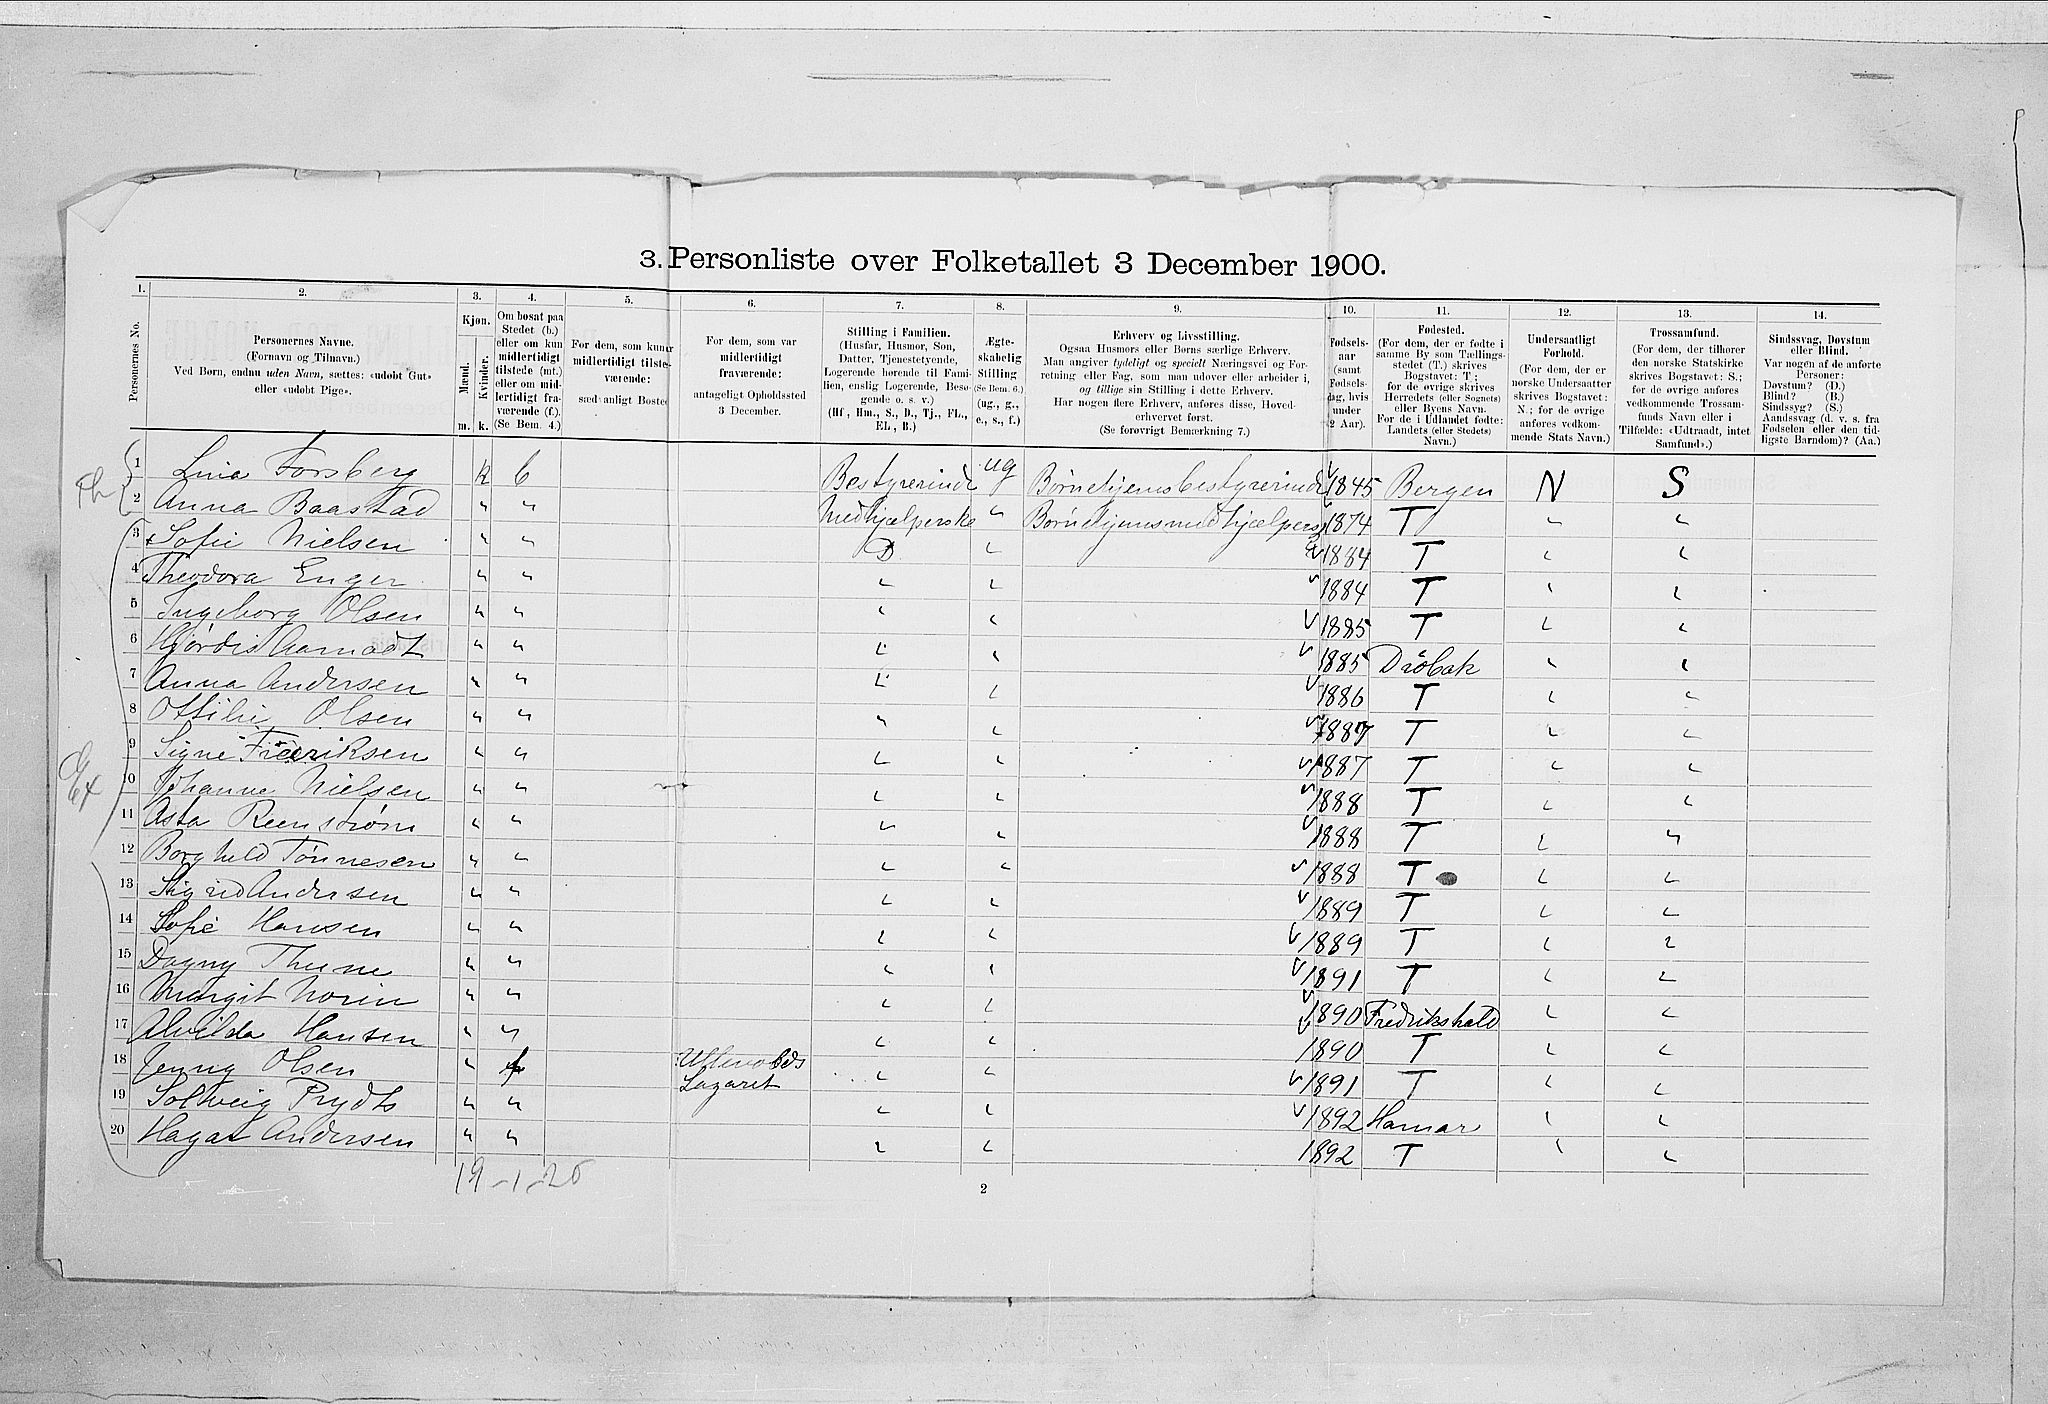 3. Personliste over Folketallet 3 December 1900.
1. 2. 3. 4. 5. 6. 7. 8. 9. 10. 11. 12. 13. 14.
Personernes No.
Personernes Navne.
(Fornavn og Tilnavn.)
Ved Børn, endnu uden Navn, sættes: «udøbt Gut»
eller «udøbt Pige».
Kjøn.
Mænd.
Kvinder.
m. k.
Om bosat paa
Stedet (b.)
eller om kun
midlertidigt
tilstede (mt.)
eller om mid-
lertidigt fra-
værende (f.).
(Se Bem. 4.)
For dem, som kun er
midlertidigt tilste-
værende:
sædvanligt Bosted
For dem, som var
midlertidigt
fraværende:
antageligt Opholdssted
3 December.
Stilling i Familien.
(Husfar, Husmor, Søn,
Datter, Tjenestetyende,
Logerende hørende til Fami-
lien, enslig Logerende, Besø-
gende o. s. v.)
(Hf., Hm., S., D., Tj., FL.,
EL., B.)
Ægte-
skabelig
Stilling
(Se Bem. 6.)
(ug., g.,
e., s., f.)
Erhverv og Livsstilling.
Ogsaa Husmors eller Børns særlige Erhverv.
Man angiver tydeligt og specielt Næringsvei og For-
retning eller Fag, som man udøver eller arbeider i,
og tillige sin Stilling i dette Erhverv.
Har nogen flere Erhverv, anføres disse, Hoved-
erhvervet først.
(Se forøvrigt Bemærkning 7.)
Fødsels-
aar
(samt
Fødsels-
dag, hvis
under
2 Aar).
Fødested.
(For dem, der er fødte i
samme By som Tællings-
stedet (T.) skrives
Bogstavet: T;
for de øvrige skrives
Herredets (eller Sognets)
eller Byens Navn.
For de i Udlandet fødte:
Landets (eller Stedets)
Navn.)
Undersaatligt
Forhold.
(For dem, der er
norske Undersaatter
skrives Bogstavet:
N.; for de øvrige
anføres vedkom-
mende Stats Navn.)
Trossamfund.
(For dem, der tilhører
den norske Statskirke
skrives Bogstavet: S.;
for de øvrige anføres
vedkommende Trossam-
funds Navn eller i
Tilfælde: «Udtraadt, intet
Samfund».)
Sindssvag, Døvstum
eller Blind.
Var nogen af de anførte
Personer:
Døvstum? (D.)
Blind? (B.)
Sindssyg? (S.)
Aandssvag (d. v. s. fra
Fødselen eller den tid-
ligste Barndom)? (Aa.)
1 Lina Forsberg k b Bestyrerinde ug Børnehjemsbestyrerinde 1845 Bergen N S
2 Anna Baastad " " Medhjælperske " Børnehjemsmedhjælperske 1874 T " "
3 Sofie Nielsen " " D " 1884 T " "
4 Theodora Enger " " " " 1884 T " "
5 Ingeborg Olsen " " " " 1885 T " "
6 Hjørdis Aamodt " " " " 1885 Drøbak " "
7 Anna Andersen " " " " 1886 T " "
8 Ottilie Olsen " " " " 1887 T " "
9 Signe Fredriksen " " " " 1887 T " "
10 Johanne Nielsen " " " " 1888 T " "
11 Asta Reenstrøm " " " " 1888 T " "
12 Borghild Tønnesen " " " " 1888 T " "
13 Sigrid Andersen " " " " 1889 T " "
14 Sofie Hansen " " " " 1889 T " "
15 Dagny Thune " " " " 1891 T " "
16 Margit Norin " " " " 1890 Fredrikshald " "
17 Alvilda Hansen " " " " 1890 T " "
18 Jenny Olsen " f Ullevolds Lazaret " " 1891 T " "
19 Solveig Prydts " " " " 1892 Hamar " "
20 Hagar Andersen " " " " 1892 T " "
Ex
2